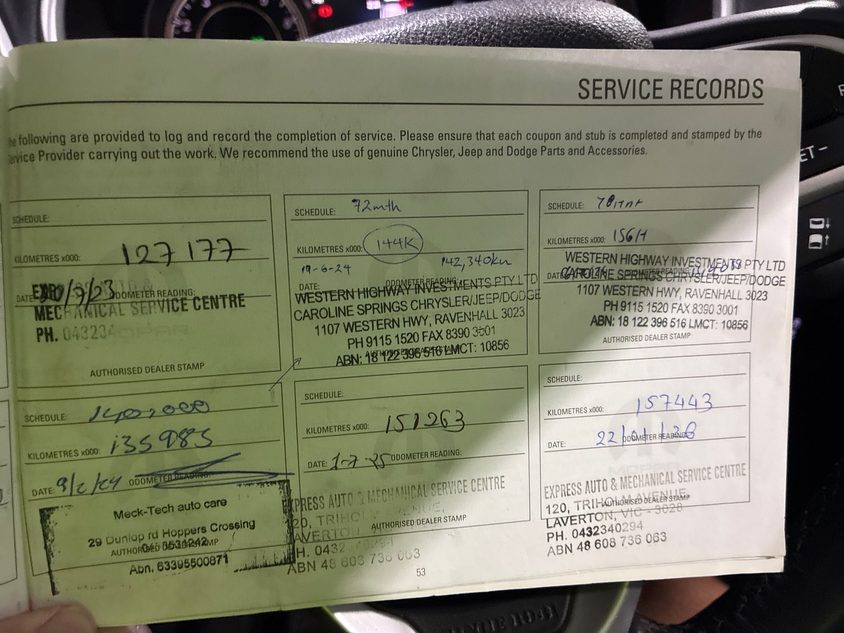 SERVICE RECORDS
he following are provided to log and record the completion of service. Please ensure that each coupon and stub is completed and stamped by the
ervice Provider carrying out the work. We recommend the use of genuine Chrysler, Jeep and Dodge Parts and Accessories.
SCHEDULE:
KILOMETRES x000: 127 177
DATE: /7/23 ODOMETER READING:
MECHANICAL SERVICE CENTRE
PH. 043234
AUTHORISED DEALER STAMP
SCHEDULE: 72mth
KILOMETRES x000: 144K
19-6-24 142,340km
DATE: ODOMETER READING:
WESTERN HIGHWAY INVESTMENTS PTY LTD
CAROLINE SPRINGS CHRYSLER/JEEP/DODGE
1107 WESTERN HWY, RAVENHALL 3023
PH 9115 1520 FAX 8390 3001
ABN: 18 122 396 516 LMCT: 10856
SCHEDULE:
KILOMETRES x000: 156K
WESTERN HIGHWAY INVESTMENTS PTY LTD
CAROLINE SPRINGS CHRYSLER/JEEP/DODGE
1107 WESTERN HWY, RAVENHALL 3023
PH 9115 1520 FAX 8390 3001
ABN: 18 122 396 516 LMCT: 10856
AUTHORISED DEALER STAMP
SCHEDULE: 140,000
KILOMETRES x000: 135985
DATE: 9/2/24 ODOMETER READING:
Meck-Tech auto care
29 Dunlop rd Hoppers Crossing
Abn. 63395500871
SCHEDULE:
KILOMETRES x000: 151263
DATE: 1-7-25 ODOMETER READING:
EXPRESS AUTO & MECHANICAL SERVICE CENTRE
120, TRIHOLM AVENUE,
AUTHORISED DEALER STAMP
LAVERTON
PH. 0432
ABN 48 608 736 063
SCHEDULE:
KILOMETRES x000: 157443
DATE: 22/01/26 ODOMETER READING:
EXPRESS AUTO & MECHANICAL SERVICE CENTRE
120, TRIHOLM AVENUE,
AUTHORISED DEALER STAMP
LAVERTON, VIC - 3028
PH. 0432340294
ABN 48 608 736 063
53